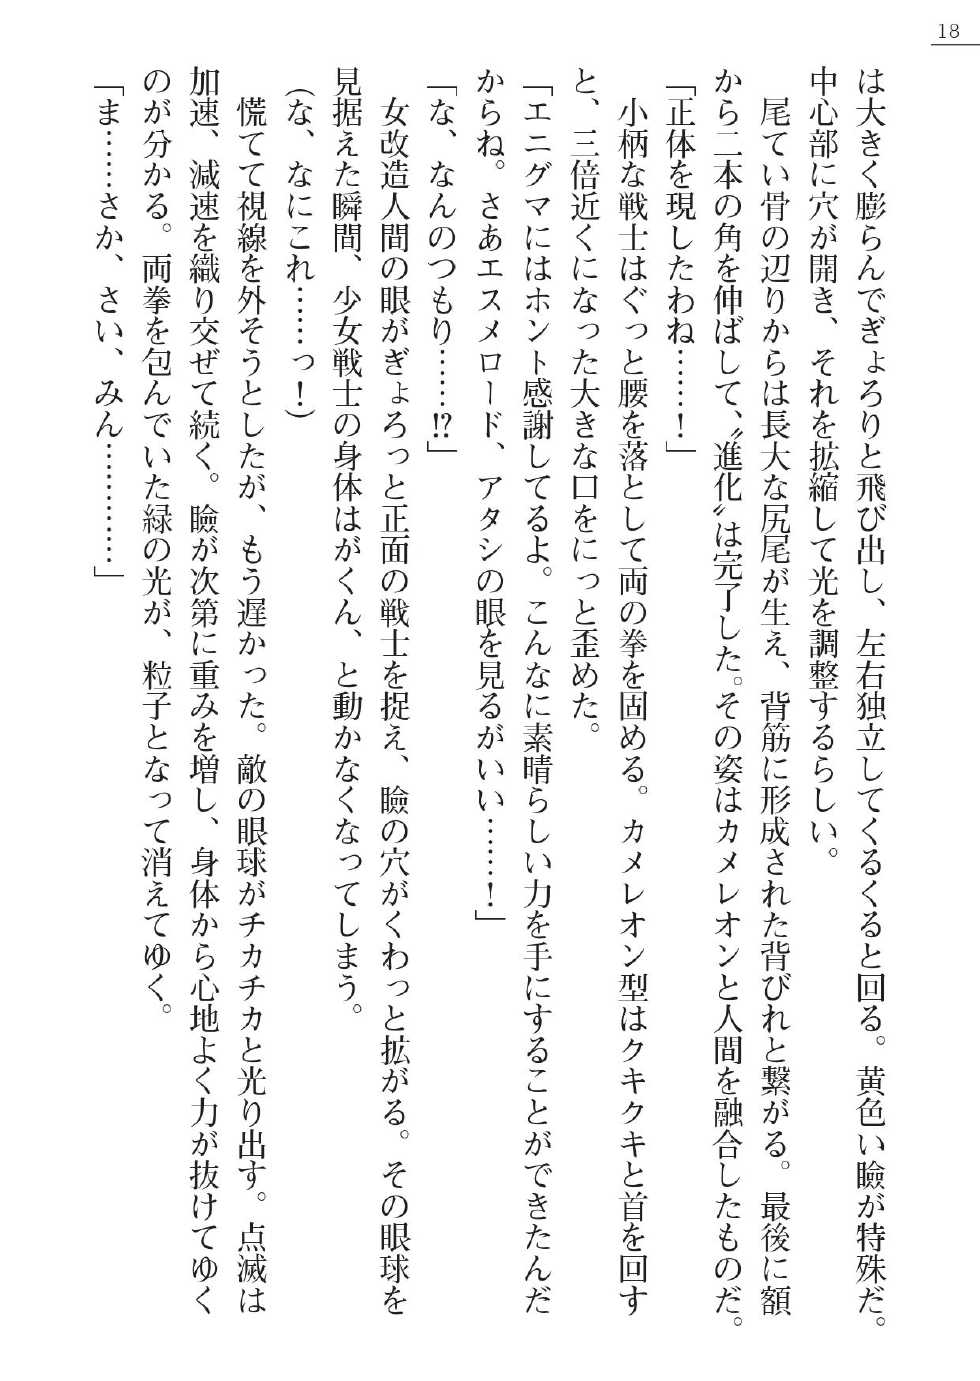 18
は大きく膨らんでぎょろりと飛び出し、左右独立してくるくると回る。黄色い瞼が特殊だ。
中心部に穴が開き、それを拡縮して光を調整するらしい。
　尾てい骨の辺りからは長大な尻尾が生え、背筋に形成された背びれと繋がる。最後に額
から二本の角を伸ばして、〝進化〟は完了した。その姿はカメレオンと人間を融合したものだ。
「正体を現したわね……！」
　小柄な戦士はぐっと腰を落として両の拳を固める。カメレオン型はクキクキと首を回す
と、三倍近くになった大きな口をにっと歪めた。
「エニグマにはホント感謝してるよ。こんなに素晴らしい力を手にすることができたんだ
からね。さあエスメロード、アタシの眼を見るがいい……！」
「な、なんのつもり……!?」
　女改造人間の眼がぎょろっと正面の戦士を捉え、瞼の穴がくわっと拡がる。その眼球を
見据えた瞬間、少女戦士の身体はがくん、と動かなくなってしまう。
（な、なにこれ……っ！）
　慌てて視線を外そうとしたが、もう遅かった。敵の眼球がチカチカと光り出す。点滅は
加速、減速を織り交ぜて続く。瞼が次第に重みを増し、身体から心地よく力が抜けてゆく
のが分かる。両拳を包んでいた緑の光が、粒子となって消えてゆく。
「ま……さか、さい、みん…………」